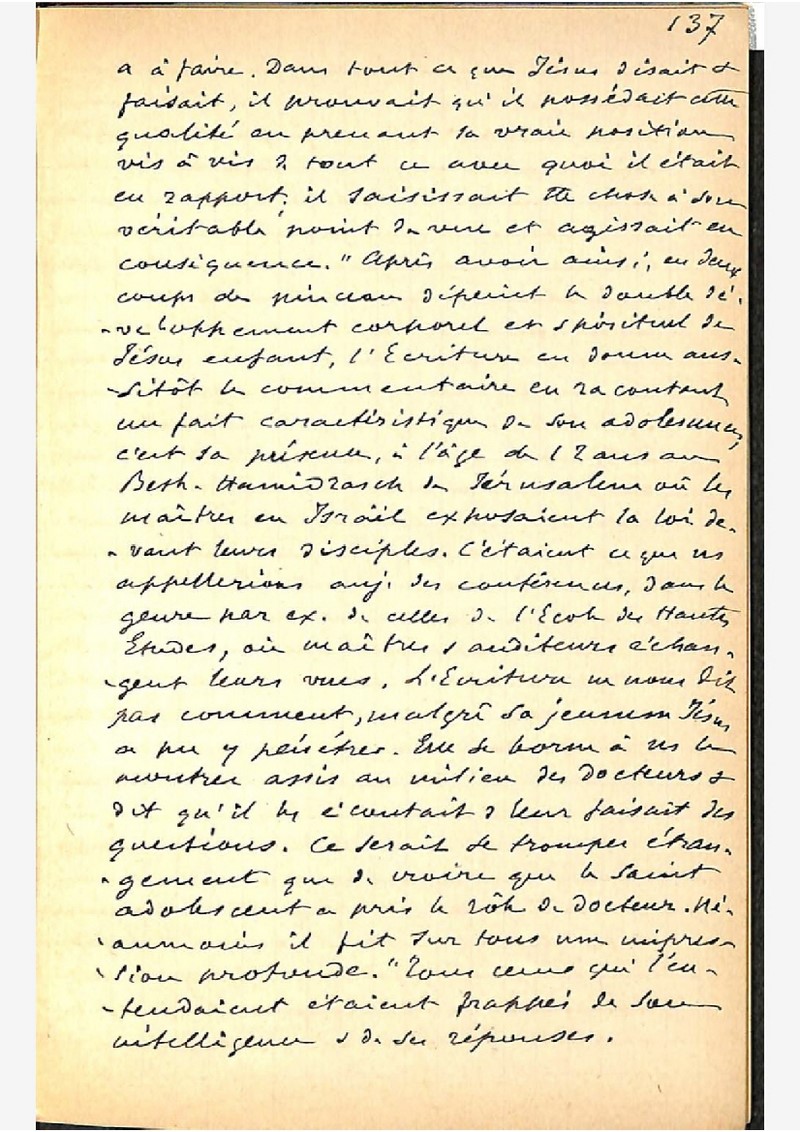 137
a à faire. Dans tout ce que Jésus disait &
faisait, il prouvait qu'il possédait cette
qualité en prenant sa vraie position
vis à vis d tout ce avec quoi il était
en rapport; il saisissait tte chose à son
véritable point de vue et agissait en
conséquence." Après avoir ainsi, en deux
coups de pinceau dépeint le double dé-
-veloppement corporel et spirituel de
Jésus enfant, l'Ecriture en donne aus-
-sitôt le commentaire en racontant
un fait caractéristique de son adolescence,
c'est sa présence, à l'âge de 12 ans au
Beth-Hamidrasch de Jérusalem où les
maîtres en Israël exposaient la loi de-
-vant leurs disciples. C'étaient ce que ns
appellerions auj. des conférences, dans le
genre par ex. de celles de l'Ecole des Hautes
Etudes, où maîtres & auditeurs échan-
-gent leurs vues. L'Ecriture ne nous dit
pas comment, malgré sa jeunesse Jésus
a pu y pénétrer. Elle se borne à ns le
montrer assis au milieu des docteurs &
dit qu'il les écoutait & leur faisait des
questions. Ce serait se tromper étran-
-gement que de croire que le saint
adolescent a pris le rôle de docteur. Né-
-anmoins il fit sur tous une impres-
-sion profonde. "Tous ceux qui l'en-
-tendaient étaient frappés de son
intelligence & de ses réponses.